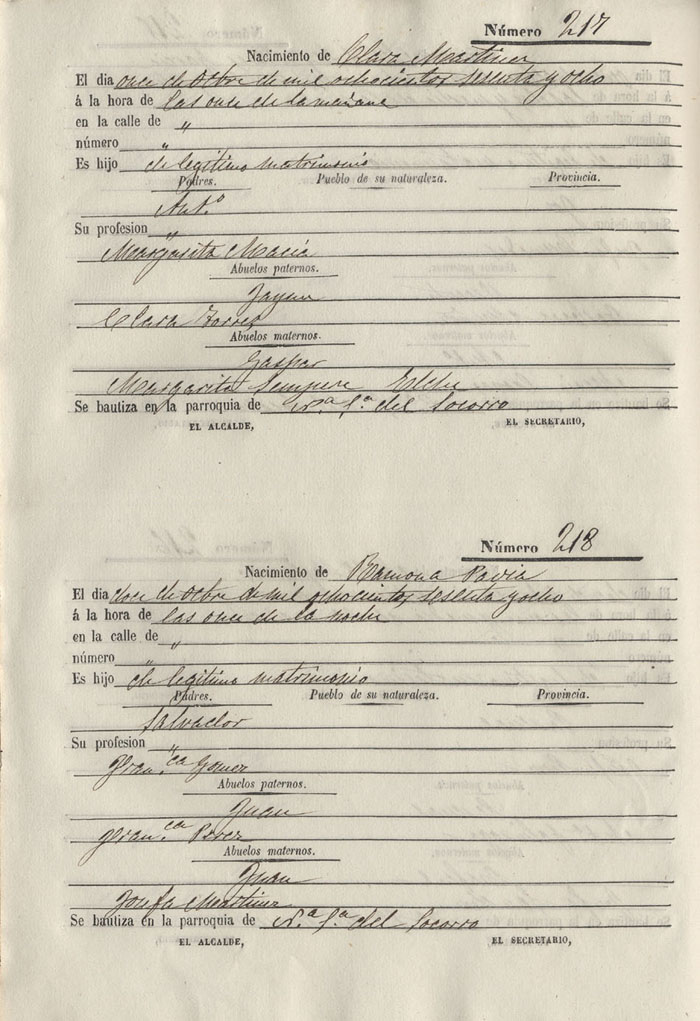 Número 217
Nacimiento de Clara Martinez
El dia once de Otbre de mil ochocientos sesenta y ocho
á la hora de las once de la mañana
en la calle de "
número "
Es hijo de legitimo matrimonio
Padres. Pueblo de su naturaleza. Provincia.
Ant.º
Su profesion "
Margarita Macia
Abuelos paternos.
Jayme
Clara Torres
Abuelos maternos.
Gaspar
Margarita Sempere Elche
Se bautiza en la parroquia de N.ª S.ª del Socorro
EL ALCALDE, EL SECRETARIO,
Número 218
Nacimiento de Ramona Pavia
El dia doce de Otbre de mil ochocientos sesenta y ocho
á la hora de las once de la noche
en la calle de "
número "
Es hijo de legitimo matrimonio
Padres. Pueblo de su naturaleza. Provincia.
Salvador
Su profesion "
Fran.ca Gomez
Abuelos paternos.
Juan
Fran.ca Perez
Abuelos maternos.
Juan
Josefa Martinez
Se bautiza en la parroquia de N.ª S.ª del Socorro
EL ALCALDE, EL SECRETARIO,